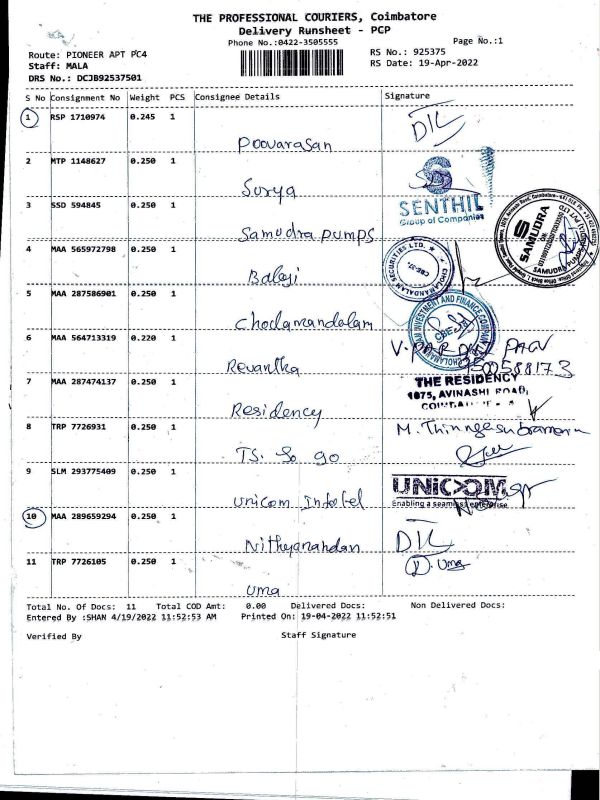 THE PROFESSIONAL COURIERS, Coimbatore
Delivery Runsheet - PCP
Phone No.:0422-3505555
Page No.:1
Route: PIONEER APT PC4
RS No.: 925375
Staff: MALA
RS Date: 19-Apr-2022
DRS No.: DCJB92537501
S No Consignment No Weight PCS Consignee Details Signature
1 RSP 1710974 0.245 1
Poovarasan
DIL
2 MTP 1148627 0.250 1
Surya
SENTHIL
Group of Companies
3 SSD 594845 0.250 1
Samudra pumps
SAMUDRA
4 MAA 565972798 0.250 1
Balaji
CHOLAMANDALAM SECURITIES LTD.
CBE-37
5 MAA 287586901 0.250 1
Cholamandalam
CHOLAMANDALAM INVESTMENT AND FINANCE COMPANY
6 MAA 564713319 0.220 1
Revantha
7 MAA 287474137 0.250 1
Residency
THE RESIDENCY
1075, AVINASHI ROAD,
8 TRP 7726931 0.250 1
9 SLM 293775409 0.250 1
Unicom Infotel
UNICOM
Enabling a seamless enterprise
10 MAA 289659294 0.250 1
Nithyanandan
DIL
11 TRP 7726105 0.250 1
Uma
Uma
Total No. Of Docs: 11 Total COD Amt: 0.00 Delivered Docs: Non Delivered Docs:
Entered By :SHAN 4/19/2022 11:52:53 AM Printed On: 19-04-2022 11:52:51
Verified By Staff Signature